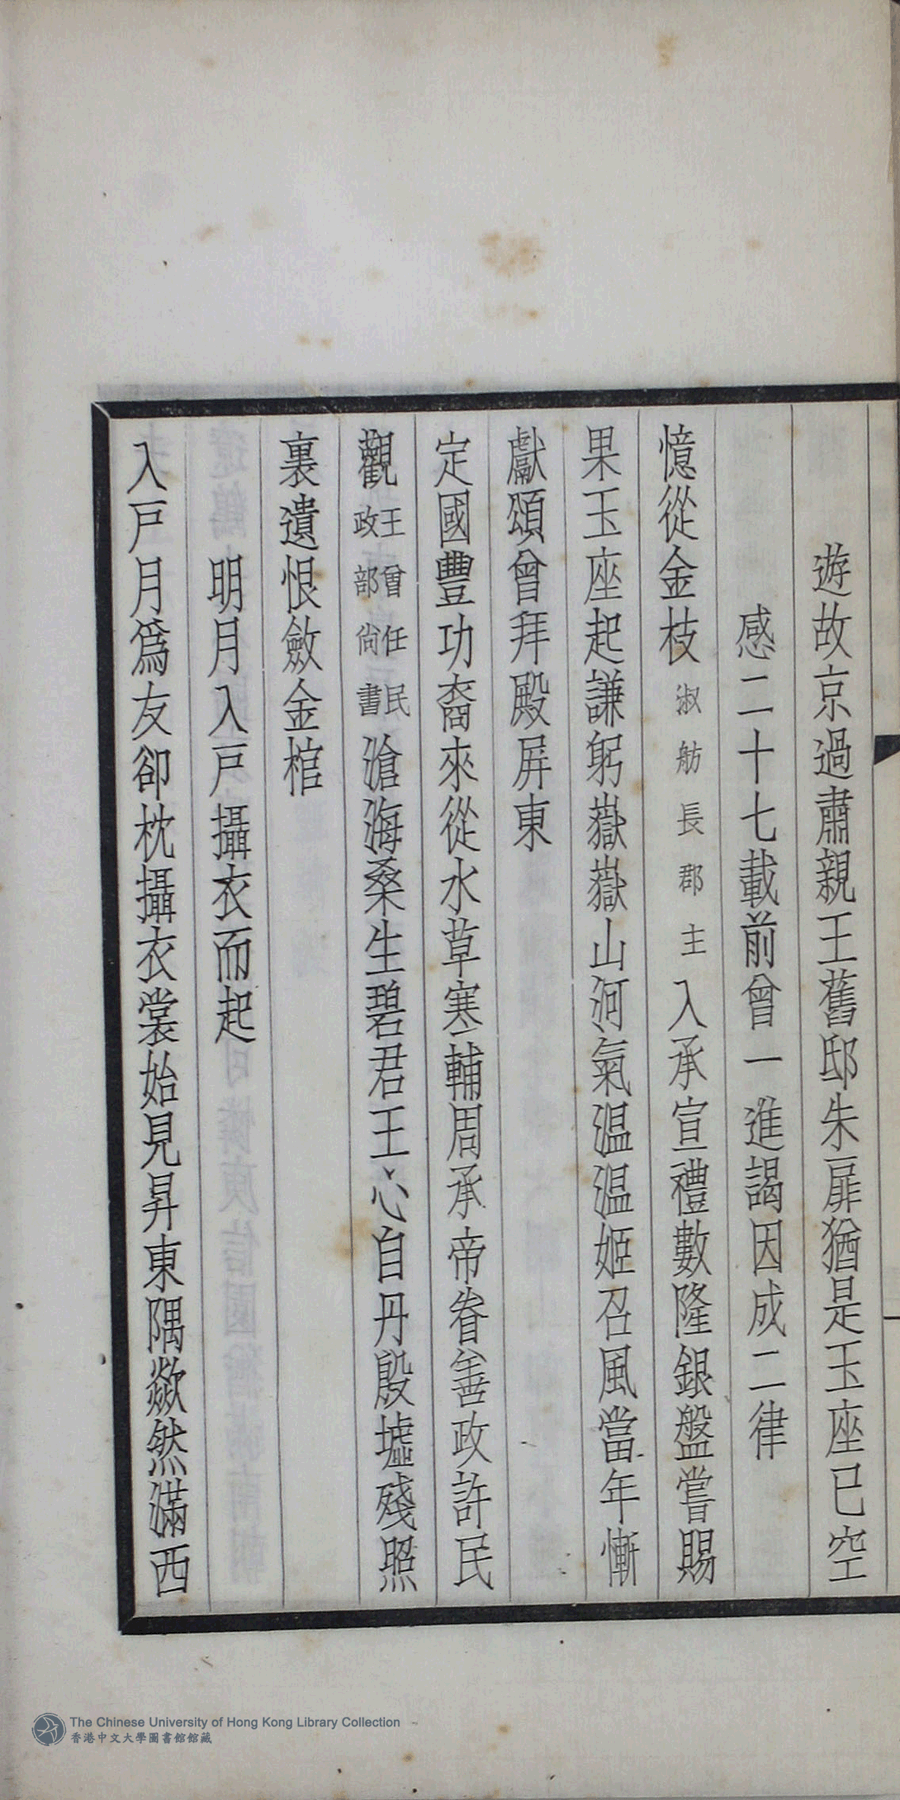 遊故京過肅親王舊邸朱扉猶是玉座已空
感二十七載前曾一進謁因成二律
憶從金枝淑舫長郡主入承宣禮數隆銀盤嘗賜
果玉座起謙躬嶽嶽山河氣温温姬召風當年慚
獻頌曾拜殿屏東
定國豐功裔來從水草寒輔周承帝眷善政許民
觀王曾任民政部尙書滄海桑生碧君王心自丹殷墟殘照
裏遺恨斂金棺
明月入戸攝衣而起
入戸月爲友卻枕攝衣裳始見昇東隅歘然滿西
The Chinese University of Hong Kong Library Collection
香港中文大學圖書館館藏